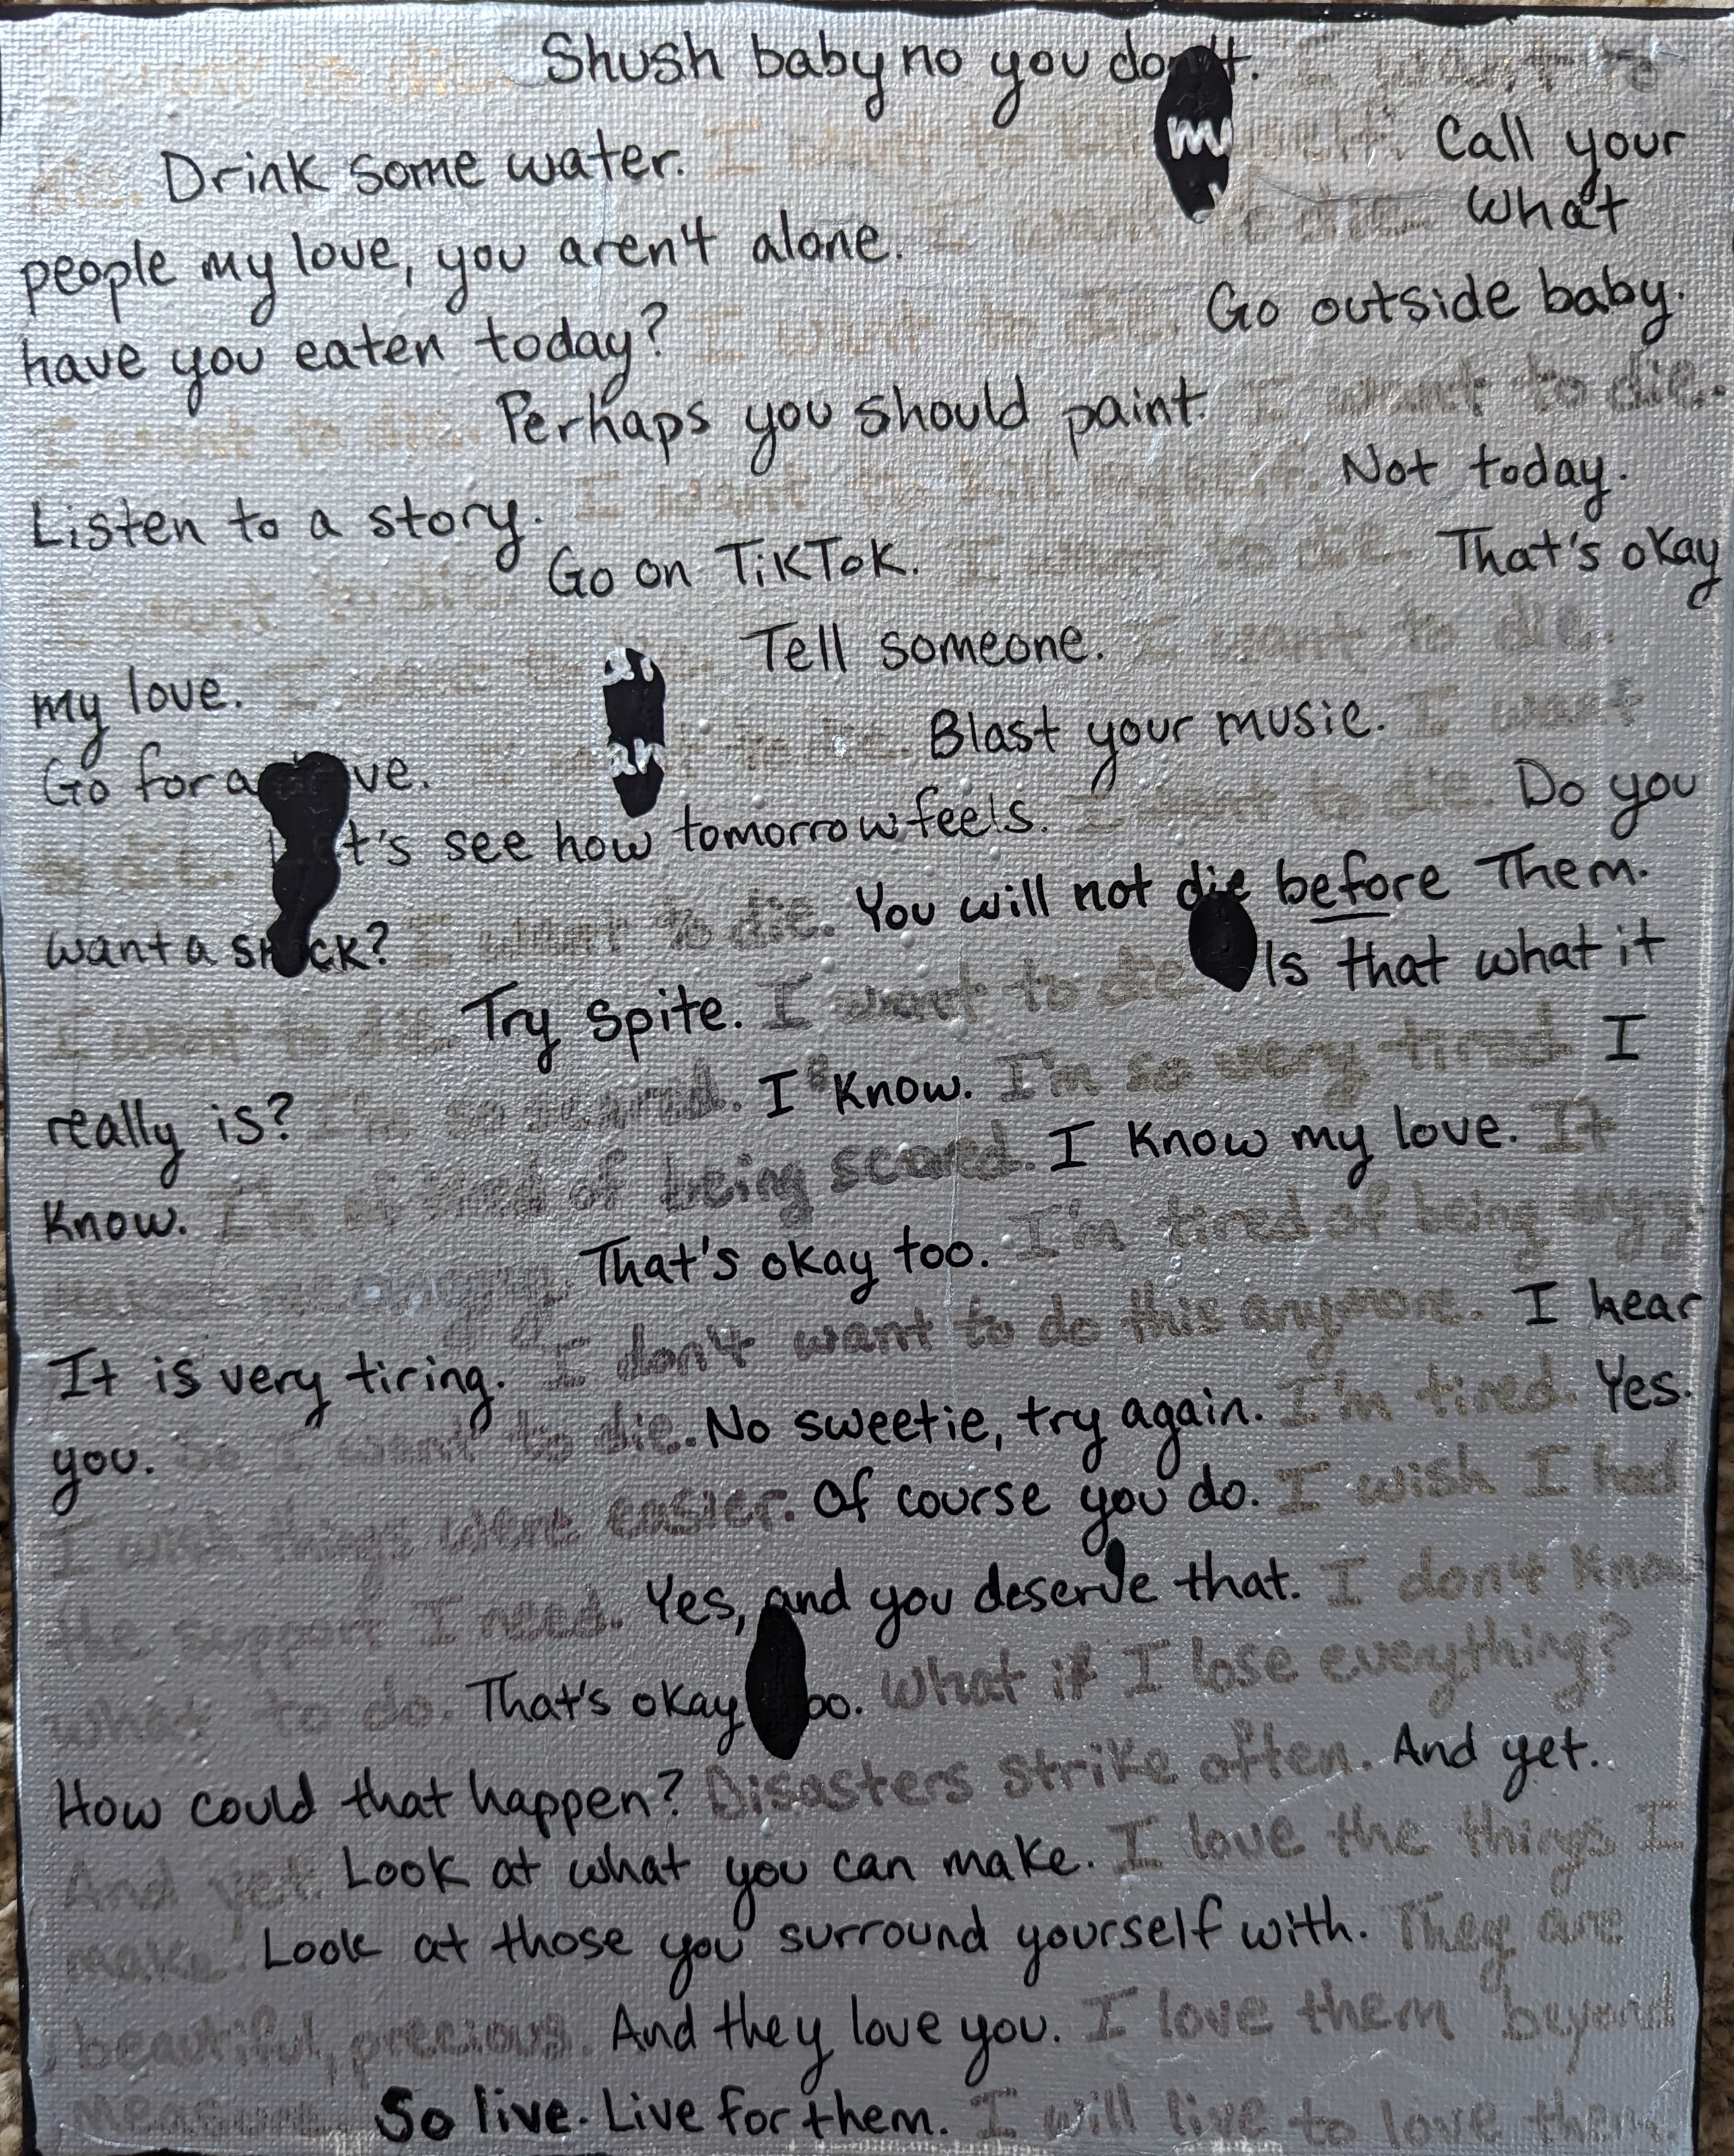 I want to die. Shush baby no you don't. I want to
die. Drink some water. I want to kill myself. Call your
people my love, you aren't alone. I want to die. What
have you eaten today? I want to die. Go outside baby.
I want to die. Perhaps you should paint. I want to die.
Listen to a story. I want to kill myself. Not today.
I want to die. Go on TikTok. I want to die. That's okay
my love. I want to die. Tell someone. I want to die.
Go for a drive. I want to die. Blast your music. I want
to die. Let's see how tomorrow feels. I want to die. Do you
want a snack? I want to die. You will not die before Them.
I want to die. Try spite. I want to die. Is that what it
really is? I'm so scared. I know. I'm so very tired I
know. I'm of tired of being scared. I know my love. It
makes me angry. That's okay too. I'm tired of being angry
It is very tiring. I don't want to do this anymore. I hear
you. So I want to die. No sweetie, try again. I'm tired. Yes.
I wish things were easier. Of course you do. I wish I had
the support I need. Yes, and you deserve that. I don't know
what to do. That's okay too. What if I lose everything?
How could that happen? Disasters strike often. And yet.
And yet. Look at what you can make. I love the things I
make. Look at those you surround yourself with. They are
beautiful, precious. And they love you. I love them beyond
measure. So live. Live for them. I will live to love them.